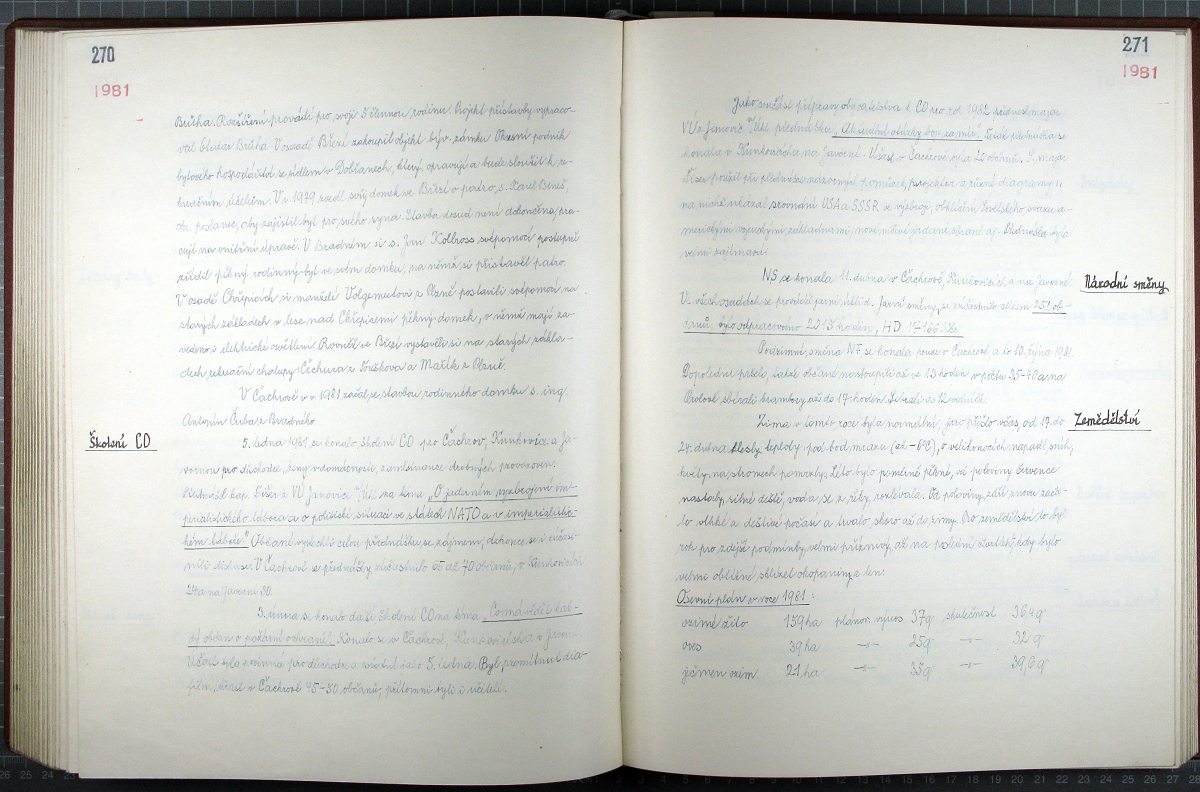 270
1981
Brůha. Rozšíření provádí pro svoji 5 člennou rodinu. Projekt přístavby vypraco-
val Otakar Brůha. V osadě Březí zakoupil objekt býv. zámku Okresní podnik
bytového hospodářství se sídlem v Dobřanech, který opravují a bude sloužit k re-
kreačním účelům. V r. 1979 začal svůj domek ve Březí o patro, s. Karel Beneš,
poslanec, aby zajistil byt pro svého syna. Stavba dosud není dokončena, pra-
cuje na vnitřní úpravě. V Bradném si s. Jan Kollross svépomocí postupně
zřídil pěkný rodinný byt ve svém domku, na němž si přistavěl patro.
V osadě Chřepicích si manželé Volgemutovi z Plzně postavili svépomocí na
starých základech v lese nad Chřepicemi pěkný domek, v němž mají za-
vedeno i elektrické osvětlení. Rovněž ve Březí vystavěli si na starých zákla-
dech rekreační chalupy Čechura z Touškova a Mařík z Plzně.
V Čachrově v r. 1981 začal se stavbou rodinného domku s. ing.
Antonín Čuba z Bradného.
Školení CO
5. ledna 1981 se konalo školení CO pro Čachrov, Kunkovice a Ja-
vornou pro důchodce, ženy v domácnosti, zaměstnance drobných provozoven.
kap. Fišer z VÚ Janovice n/Úhl. na téma „O jaderném vyzbrojení im-
perialistického tábora a o politické situaci ve státech NATO a v imperialistic-
kém táboře." Občané vyslechli celou přednášku se zájmem, dokonce se i zúčast-
nili diskuse. V Čachrově se přednášky zúčastnilo 65 až 70 občanů, v Kunkovicích
24 a na Javorné 30.
3. února se konalo další školení CO na téma „Co má vědět kaž-
dý občan o požární ochraně". Konalo se v Čachrově, Kunkovicích a v Javorné
Účast byla povinná pro důchodce a ostatní jako 5. ledna. Byl promítnut dia-
film, účast v Čachrově 45-50 občanů, přítomni byli i učitelé.
271
1981
Jako součást přípravy obyvatelstva k CO pro rok 1982 sjednost major
VÚ z Janovic n/Úhl. přednášku „Aktuální otázky boje za mír". Tato přednáška se
konala v Kunkovicích a na Javorné. Účast v Čachrově byla 20 občanů. S. major
Fišer použil při přednášce názorných pomůcek, projektor a různé diagramy,
na nichž ukázal srovnání USA a SSSR ve výzbroji, obklíčení Sovětského svazu a-
merickými vojenskými základnami, novou jadernou zbraně aj. Přednáška byla
velmi zajímavá.
Národní směny
NS se konala 11. dubna v Čachrově, Kunkovicích a na Javorné.
Ve všech osadách se prováděl jarní úklid. Jarní směny se zúčastnilo celkem 251 ob-
čanů, bylo odpracováno 2013 hodin, HD 17166 Kčs.
Podzimní směna NF se konala pouze v Čachrově a to 10. října 1981.
Dopoledne pršelo, takže občané nastoupili až ve 13 hodin v počtu 35-40 a na
sbírali brambory až do 17 hodin.
Zemědělství
Zima v tomto roce byla normální, jaro přišlo včas, od 17. do
24. dubna klesly teploty pod bod mrazu (až -6°C), o velikonocích napadl sníh,
květy na stromech pomrzly. Léto bylo poměrně pěkné, od poloviny července
nastaly silné deště, voda se z řeky rozlévala. Od poloviny září znovu zača-
lo vlhké a deštivé počasí a trvalo skoro až do zimy. Pro zemědělství to byl
rok pro zdejší podmínky velmi příznivý, až na podzim kdy bylo
velmi obtížné sklízet okopaniny a len.
Osevní plán v roce 1981:
ozimé žito 159 ha plánov. výnos 37q skutečnost 36,4q
oves 39 ha -"- 25q -"- 32 q
ječmen ozim. 21 ha -"- 35q -"- 39,6q